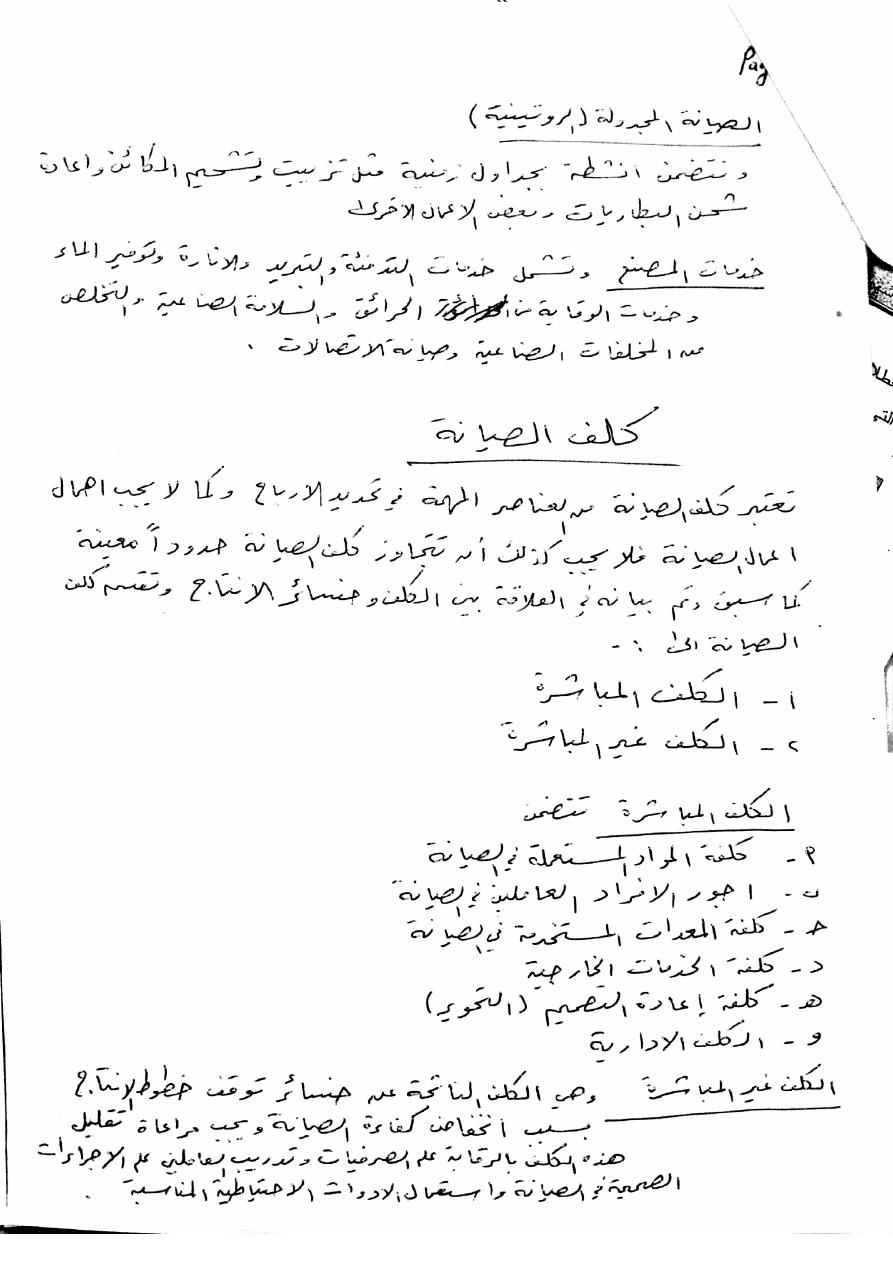 Pag
الصيانة المجدولة (الروتينية)
وتتضمن انشطة بجداول زمنية مثل تزييت وتشحيم المكائن واعادة
شحن البطاريات وبعض الاعمال الاخرى
خدمات المصنع وتشمل خدمات التدفئة والتبريد والانارة وتوفير الماء
وخدمات الوقاية من الحرائق والسلامة الصناعية والتخلص
من المخلفات الصناعية وصيانة الاتصالات .
كلف الصيانة
تعتبر كلف الصيانة من العناصر المهمة في تحديد الارباح وكما لا يجب اهمال
اعمال الصيانة فلا يجب كذلك أن تتجاوز كلف الصيانة حدوداً معينة
كما سبق وتم بيانه في العلاقة بين الكلف وخسائر الانتاج وتقسم كلف
الصيانة الى :-
١- الكلف المباشرة
٢- الكلف غير المباشرة
الكلف المباشرة تتضمن
أ- كلفة المواد المستعملة في الصيانة
ب- اجور الافراد العاملين في الصيانة
ج- كلفة المعدات المستخدمة في الصيانة
د- كلفة الخدمات الخارجية
هـ- كلفة إعادة التصميم (التحوير)
و- الكلف الادارية
الكلف غير المباشرة وهي الكلف الناتجة عن خسائر توقف خطوط الانتاج
بسبب انخفاض كفاءة الصيانة ويجب مراعاة تقليل
هذه الكلف بالرقابة على الصرفيات وتدريب العاملين على الاجراءات
الصحيحة في الصيانة واستعمال الادوات الاحتياطية المناسبة .